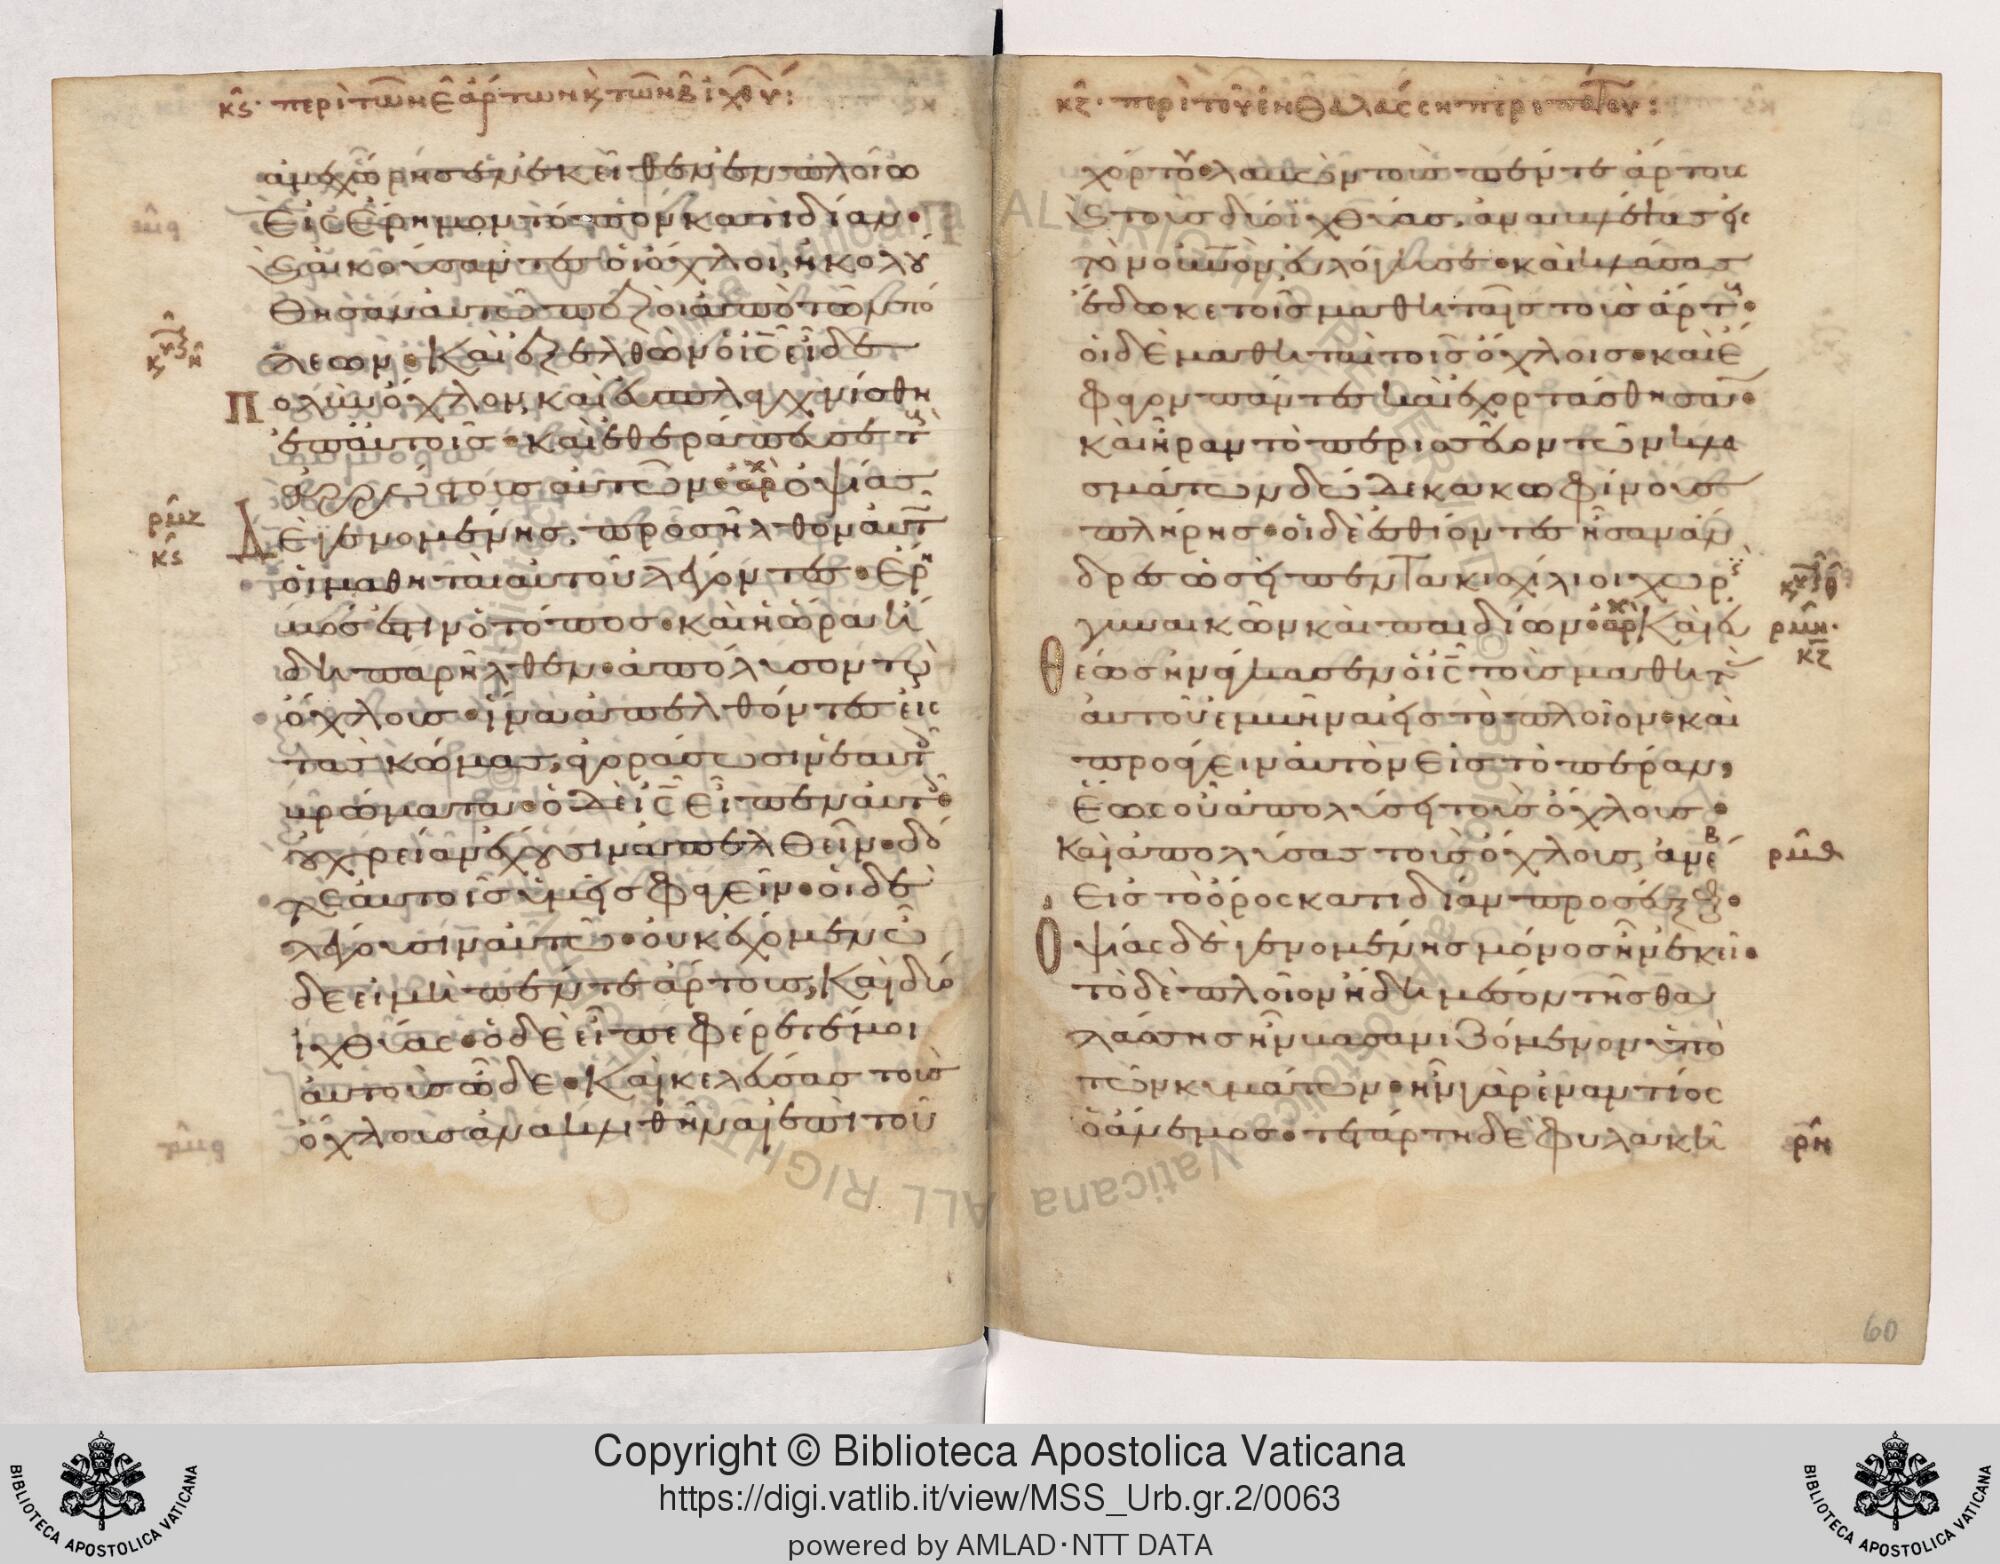 κϛ· περὶ τῶν ε ἄρτων κ τῶν β ἰχθύ:
ἀνεχώρησεν ἐκεῖθεν ἐν πλοίω
εἰς ἔρημον τόπον κατιδίαν·
κ ἀκούσαντες οἱ ὄχλοι, ἠκολού
θησαν αὐτῶ πεζοὶ ἀπὸ τῶν πό
λεων· Καὶ ἐξελθὼν ὁ ις εἶδε
πολὺν ὄχλον, καὶ ἐσπλαγχνίσθη
ἐπ αὐτοῖς· καὶ ἐθεράπευσε τοὺ
ἀρρώστους αὐτῶν· ἀρχ ὀψίας
ρμζ
κϛ
Δὲ γενομένης, προσῆλθον αὐτῶ
οἱ μαθηταὶ αὐτοῦ λέγοντες· ἔρη
μός ἐστιν ὁ τόπος· καὶ ἡ ὥρα ἤ
δη παρῆλθεν· ἀπόλυσον τοὺ
ὄχλους· ἵνα ἀπελθόντες εἰς
τὰς κώμας, ἀγοράσωσιν ἑαυτοῖ
βρώματα· ὁ δὲ ις εἶπεν αὐτοῖ·
οὐ χρείαν ἔχουσιν ἀπελθεῖν· δό
τε αὐτοῖς ὑμεῖς φαγεῖν· οἱ δὲ
λέγουσιν αὐτῶ· οὐκ ἔχομεν ὧ
δε εἰ μὴ πέντε ἄρτους, Καὶ δύο
ἰχθύας· ὁ δὲ εἶπε φέρετέ μοι
αὐτοὺς ὧδε· Καὶ κελεύσας τοὺς
ὄχλους ἀνακλιθῆναι ἐπὶ τοῦ
κζ· περὶ τοῦ ἐν θαλάσση περιπάτου:
χόρτου· λαβὼν τοὺς πέντε ἄρτους
κ τοὺς δύο ἰχθύας, ἀναβλέψας εἰς
τὸν οὐνον εὐλόγησε· καὶ κλάσας
ἔδωκε τοῖς μαθηταῖς τοὺς ἄρτου·
οἱ δὲ μαθηταὶ τοῖς ὄχλοις· καὶ ἔ
φαγον πάντες καὶ ἐχορτάσθησαν·
καὶ ἦραν τὸ περισσεῦον τῶν κλα
σμάτων δώδεκα κοφίνους
πλήρης· οἱ δὲ ἐσθίοντες ἦσαν ἄν
δρες ὡσεὶ πεντακισχίλιοι χωρὶς
γυναικῶν καὶ παιδίων· ἀρχ Καὶ εὐ
ρμη·
κζ
θέως ἠνάγκασεν ὁ ις τοὺς μαθητὰ
αὐτοῦ ἐμβῆναι εἰς τὸ πλοῖον· καὶ
προάγειν αὐτὸν εἰς τὸ πέραν,
ἕως οὗ ἀπολύση τοὺς ὄχλους·
Καὶ ἀπολύσας τοὺς ὄχλους, ἀνέβ
ρμθ
εἰς τὸ ὄρος κατιδίαν προσεύξ·
ὀψίας δὲ γενομένης μόνος ἦν ἐκεῖ·
τὸ δὲ πλοῖον ἤδη μέσον τῆς θα
λάσσης ἦν βασανιζόμενον ὑπὸ
τῶν κυμάτων· ἦν γὰρ ἐναντίος
ὁ ἄνεμος· τετάρτη δὲ φυλακῆ
ρν
60
Copyright © Biblioteca Apostolica Vaticana
https://digi.vatlib.it/view/MSS_Urb.gr.2/0063
powered by AMLAD·NTT DATA
BIBLIOTECA APOSTOLICA VATICANA
BIBLIOTECA APOSTOLICA VATICANA